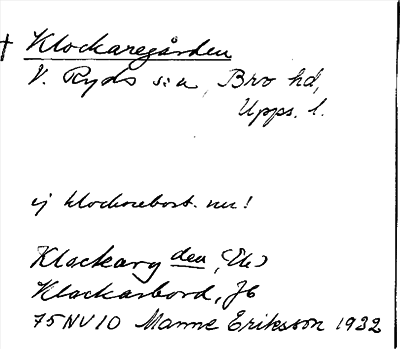 † Klockaregården
V. Ryds sn, Bro hd,
Upps. l.
ej klockarebost. nu!
Klockarg den, (Ek)
Klockarbord, Jb
75NV10 Manne Eriksson 1932